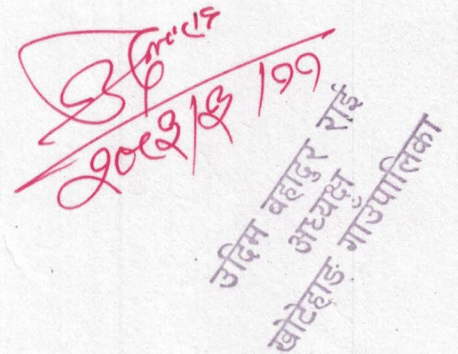 २०८२।३।११
उदिम बहादुर राई
अध्यक्ष
खोटेहाङ गाउँपालिका